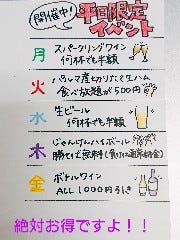 開催中!
平日限定
イベント
月 スパークリングワイン
何杯でも半額
火 パルマ産切りたて生ハム
食べ放題が500円
水 生ビール
何杯でも半額
木 じゃんけんハイボール
勝てば無料(負けても通常料金)
金 ボトルワイン
ALL 1000円引き
絶対お得ですよ!!